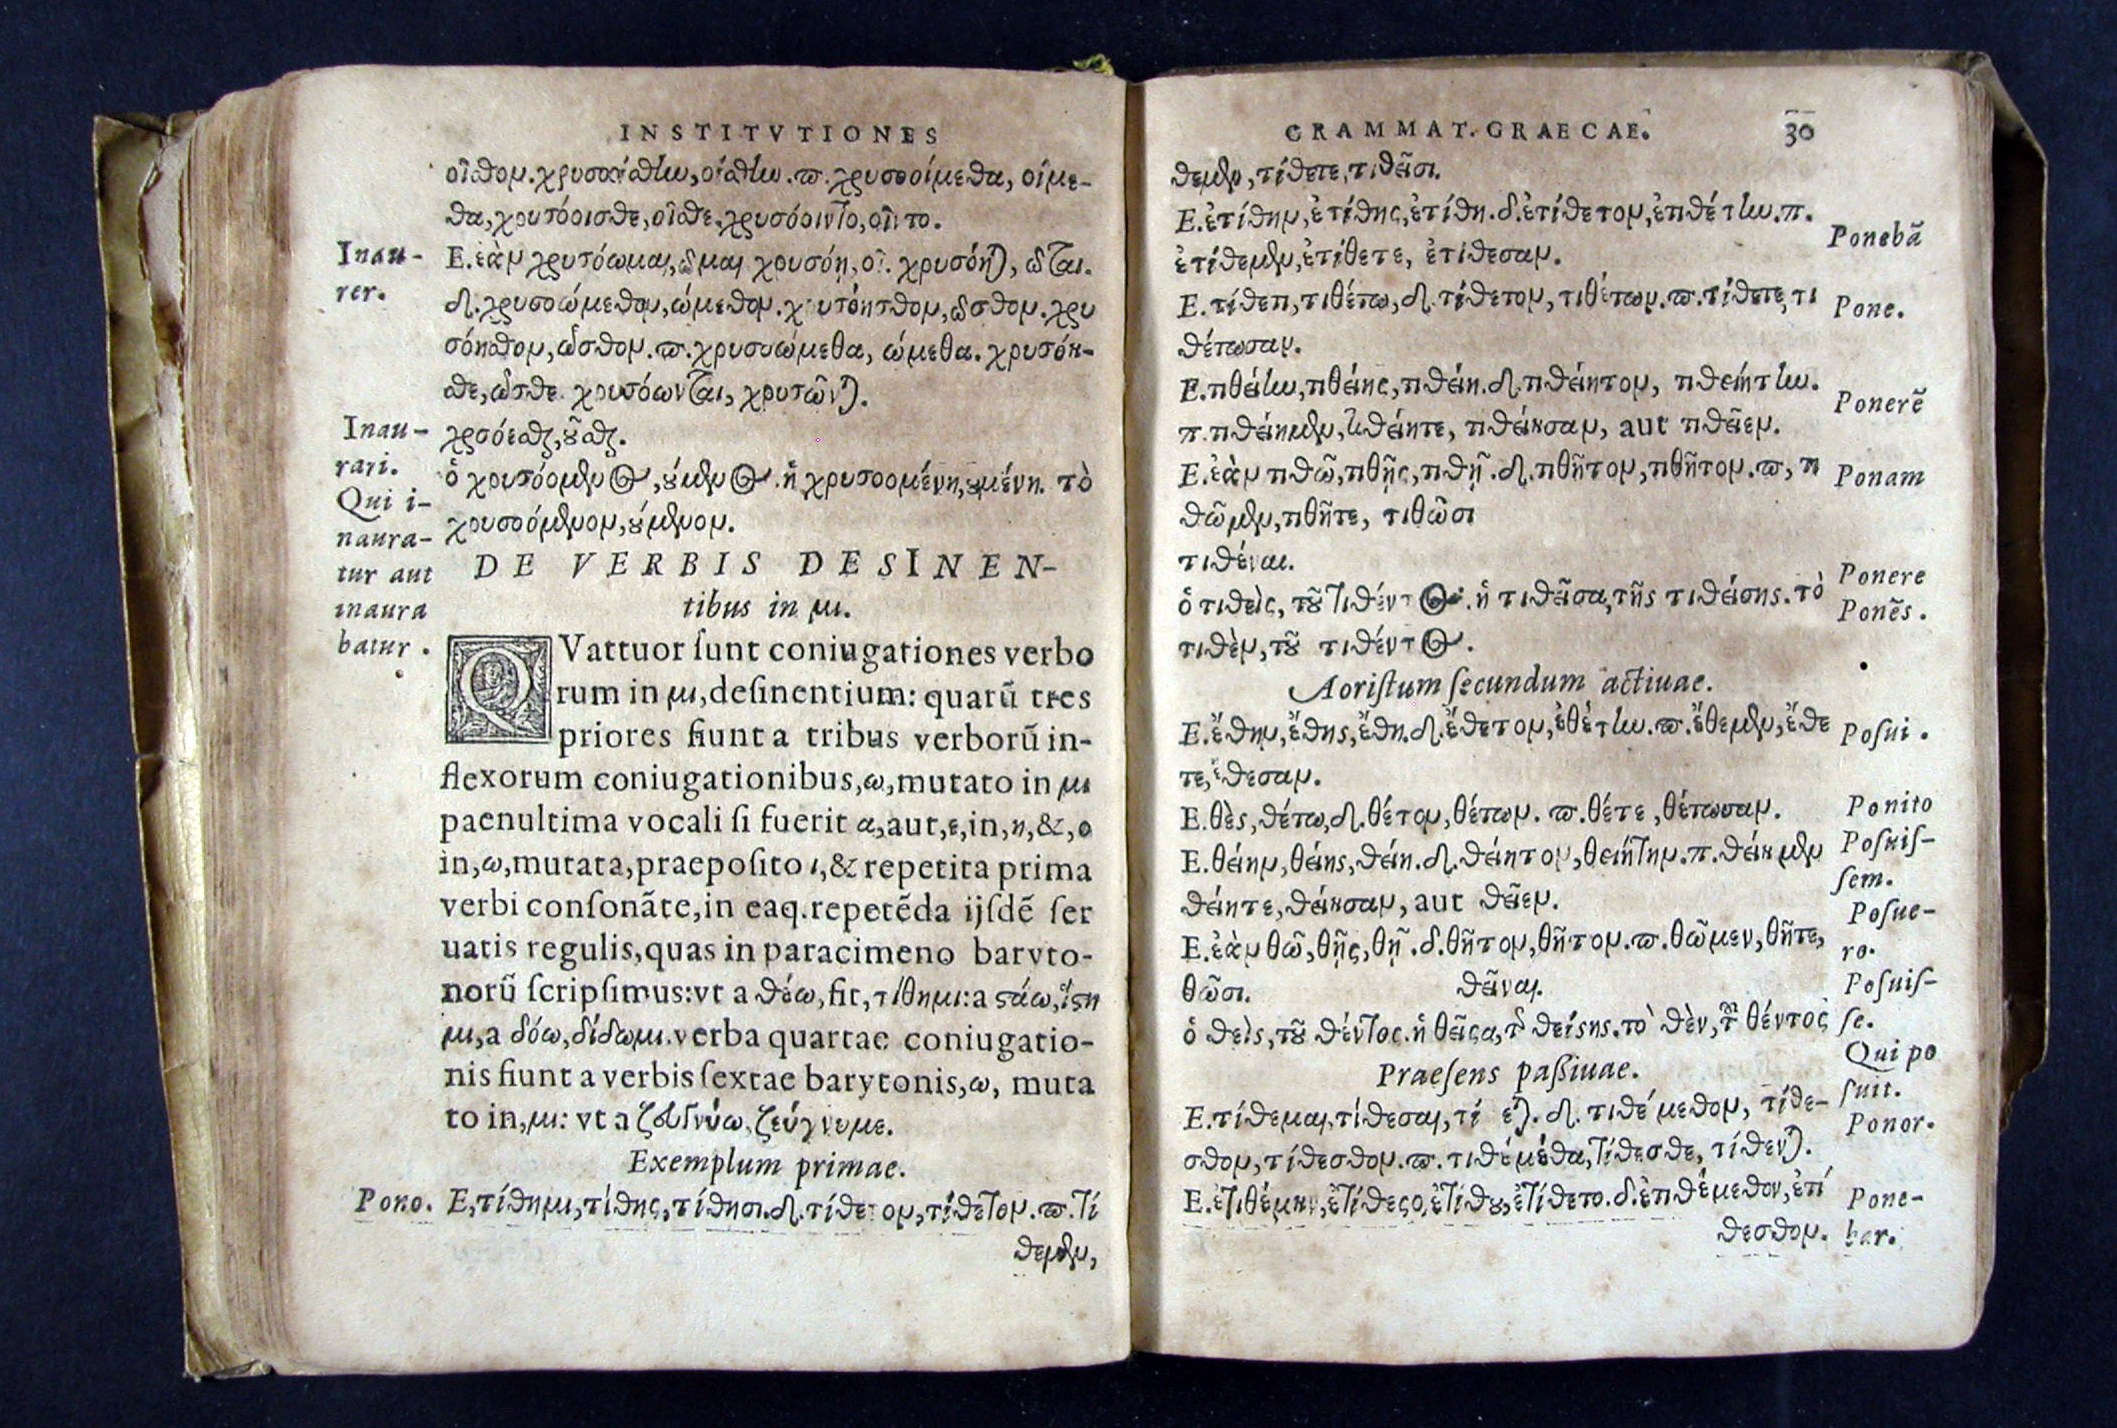 INSTITVTIONES
οῖσθον. χρυσοοίσθην, οίσθην. π. χρυσοοίμεθα, οίμε-
θα, χρυσόοισθε, οῖσθε, χρυσόοιντο, οῖντο.
Inau-
rer.
Ε. ἐὰν χρυσόωμαι, ῶμαι χρυσόη, οῖ. χρυσόηται, ῶται.
δ. χρυσοώμεθον, ώμεθον. χρυσόησθον, ῶσθον. χρυ
σόησθον, ῶσθον. π. χρυσοώμεθα, ώμεθα. χρυσόη-
σθε, ῶσθε χρυσόωνται, χρυσῶνται.
Inau-
rari.
χρσόεσθαι, οῦσθαι.
Qui i-
naura-
tur aut
inaura
batur.
ὁ χρυσόομενος, ούμενος. ἡ χρυσοομένη, ουμένη. τὸ
χρυσοόμενον, ούμενον.
DE VERBIS DESINEN-
tibus in μι.
QVattuor ſunt coniugationes verbo
rum in μι, deſinentium: quarũ tres
priores fiunt a tribus verborũ in-
flexorum coniugationibus, ω, mutato in μι
paenultima vocali ſi fuerit α, aut, ε, in, η, &, ο
in, ω, mutata, praepoſito ι, & repetita prima
verbi conſonãte, in eaq. repetẽda ijſdẽ ſer
uatis regulis, quas in paracimeno baryto-
norũ ſcripſimus: vt a θέω, fit, τίθημι: a ϛάω, ἵϛη
μι, a δόω, δίδωμι. verba quartae coniugatio-
nis fiunt a verbis ſextae barytonis, ω, muta
to in, μι: vt a ζευγνύω, ζεύγνυμε.
Exemplum primae.
Pono. Ε, τίθημι, τίθης, τίθησι. δ. τίθετον, τίθετον. π. τί
θεμεν,
GRAMMAT. GRAECAE. 30
θεμεν, τίθετε, τιθεῖσι.
Ε. ἐτίθην, ἐτίθης, ἐτίθη. δ. ἐτίθετον, ἐτιθέτην. π.
ἐτίθεμεν, ἐτίθετε, ἐτίθεσαν.
Ponebã
Ε. τίθετι, τιθέτω, δ. τίθετον, τιθέτων. π. τίθετε, τι
θέτωσαν.
Pone.
Ε. τιθείην, τιθείης, τιθείη. δ. τιθείητον, τιθειήτην.
π. τιθείημεν, τιθείητε, τιθείησαν, aut τιθεῖεν.
Ponerẽ
Ε. ἐὰν τιθῶ, τιθῇς, τιθῇ. δ. τιθῆτον, τιθῆτον. π, τι
θῶμεν, τιθῆτε, τιθῶσι
Ponam
τιθέναι.
Ponere
ὁ τιθεὶς, τοῦ τιθέντος. ἡ τιθεῖσα, τῆς τιθείσης. τὸ
τιθὲν, τοῦ τιθέντος.
Ponẽs.
Aoriſtum ſecundum actiuae.
Ε. ἔθην, ἔθης, ἔθη. δ. ἔθετον, ἐθέτην. π. ἔθεμεν, ἔθε
τε, ἔθεσαν.
Poſui.
Ε. θὲς, θέτω, δ. θέτον, θέτων. π. θέτε, θέτωσαν.
Ponito
Ε. θείην, θείης, θείη. δ. θείητον, θειήτην. π. θείημεν
θείητε, θείησαν, aut θεῖεν.
Poſuiſ-
ſem.
Ε. ἐὰν θῶ, θῇς, θῇ. δ. θῆτον, θῆτον. π. θῶμεν, θῆτε,
θῶσι. θεῖναι.
Poſue-
ro.
Poſuiſ-
ſe.
ὁ θεὶς, τοῦ θέντος. ἡ θεῖσα, τῆς θείσης. τὸ θὲν, τοῦ θέντος
Qui po
ſuit.
Praeſens paſſiuae.
Ε. τίθεμαι, τίθεσαι, τίθεται. δ. τιθέμεθον, τίθε-
σθον, τίθεσθον. π. τιθέμεθα, τίθεσθε, τίθενται.
Ponor.
Ε. ἐτιθέμην, ἐτίθεσο, ἐτίθου, ἐτίθετο. δ. ἐτιθέμεθον, ἐτί
θεσθον.
Pone-
bar.